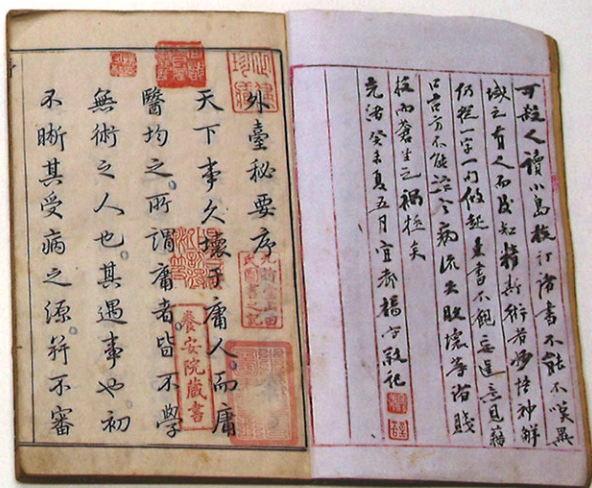 可殺人讀小島校訂諸書不能不嘆異
域之有人而及知精斯術者妙悟神解
仍從一字一句做起束書不觀妄逞意見藉
口古方不能治今病流失敗壞等諸賤
技而蒼生之禍極矣
光緒癸未夏五月宜都楊守敬記
外臺秘要序
天下事久壞于庸人。而庸
醫均之。所謂庸者皆不學
無術之人也。其遇事也。初
不晰其受病之源并不審
九折堂山田
氏圖書之記
養安院藏書